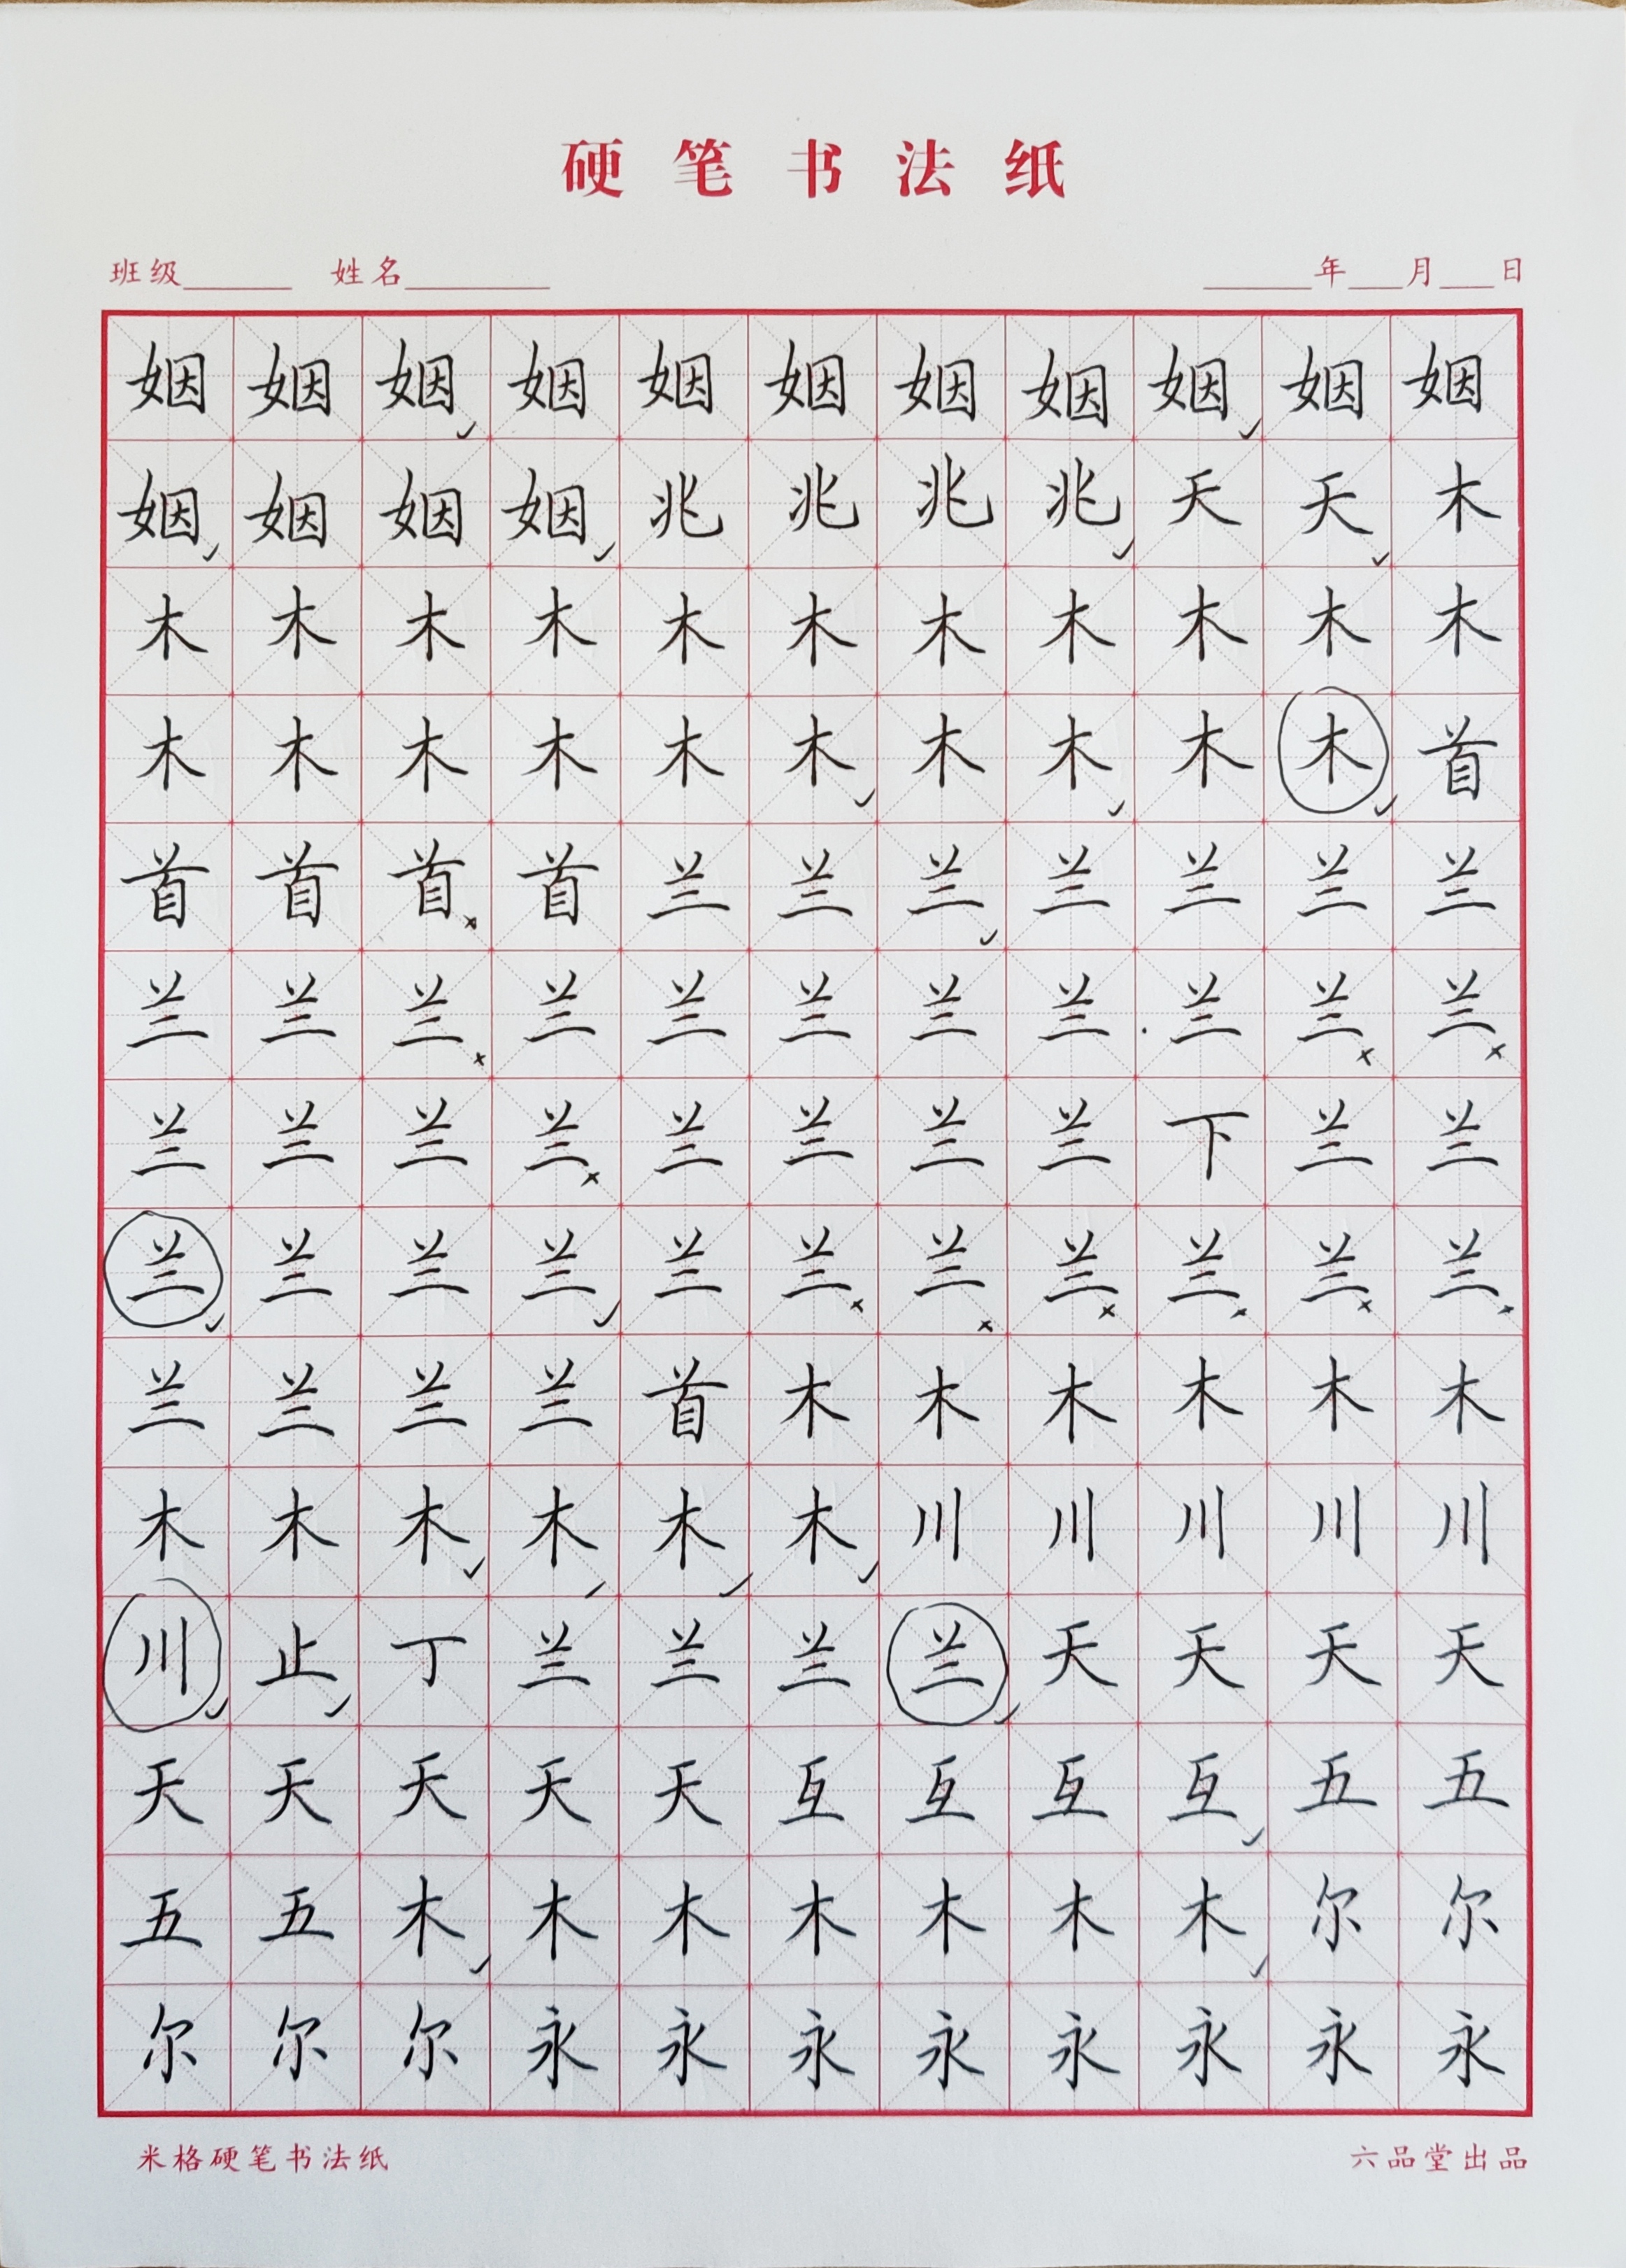 硬笔书法纸
班级 姓名 年 月 日
姻姻姻姻姻姻姻姻姻姻姻
姻姻姻姻兆兆兆兆天天木
木木木木木木木木木木木
木木木木木木木木木木首
首首首首兰兰兰兰兰兰兰
兰兰兰兰兰兰兰兰兰兰兰
兰兰兰兰兰兰兰兰下兰兰
兰兰兰兰兰兰兰兰兰兰兰
兰兰兰兰首木木木木木木
木木木木木木川川川川川
川止丁兰兰兰兰天天天天
天天天天天互互互互五五
五五木木木木木木木尔尔
尔尔尔永永永永永永永永
米格硬笔书法纸 六品堂出品